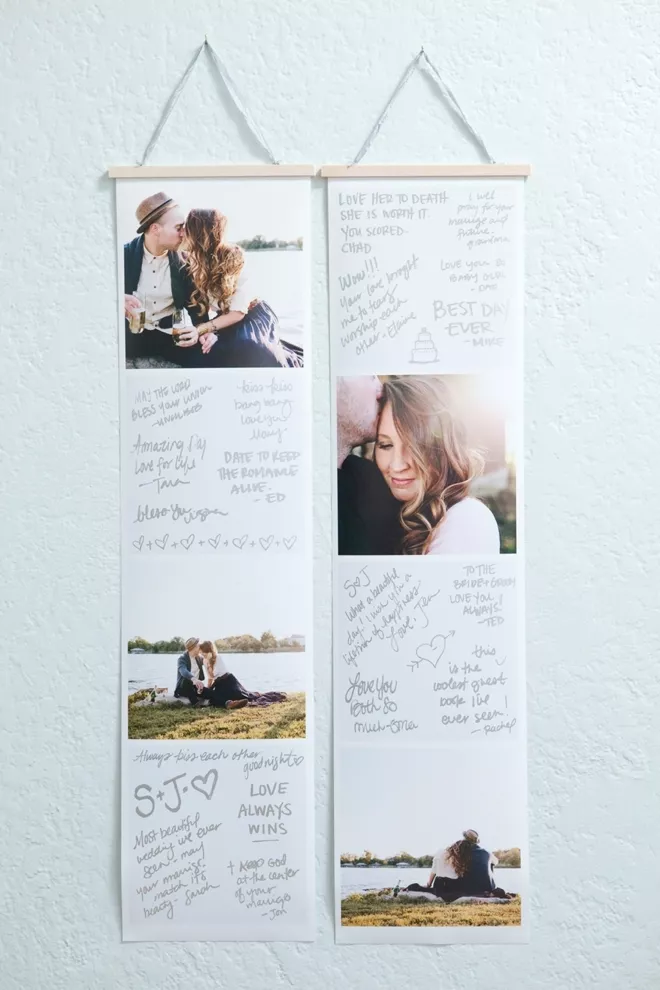 MAY THE LORD
BLESS YOUR UNION
kiss-kiss
bang bang
love you
Amazing Day
Love for Life
- Tara
DATE TO KEEP
THE ROMANCE
ALIVE.
- ED
bless you
Always kiss each other
goodnight
S+J
LOVE
ALWAYS
WINS
Most beautiful
wedding we ever
seen - may
your marriage
match it's
beauty - Sarah
+ Keep God
at the center
of your
marriage
- Jon
LOVE HER TO DEATH
SHE IS WORTH IT.
YOU SCORED.
CHAD
I will
pray for your
marriage and
future.
grandma
WOW!!!
Your love brought
me to tears
worship each
other - Elaine
LOVE YOU
BEST DAY
EVER
- MIKE
S J
What a beautiful
day! I wish you a
lifetime of happiness
Love, Jen
TO THE
BRIDE + GROOM
LOVE YOU
ALWAYS!
- TED
Love You
Both So
much - Ema
this
is the
coolest guest
book I've
ever seen!
- Rachel